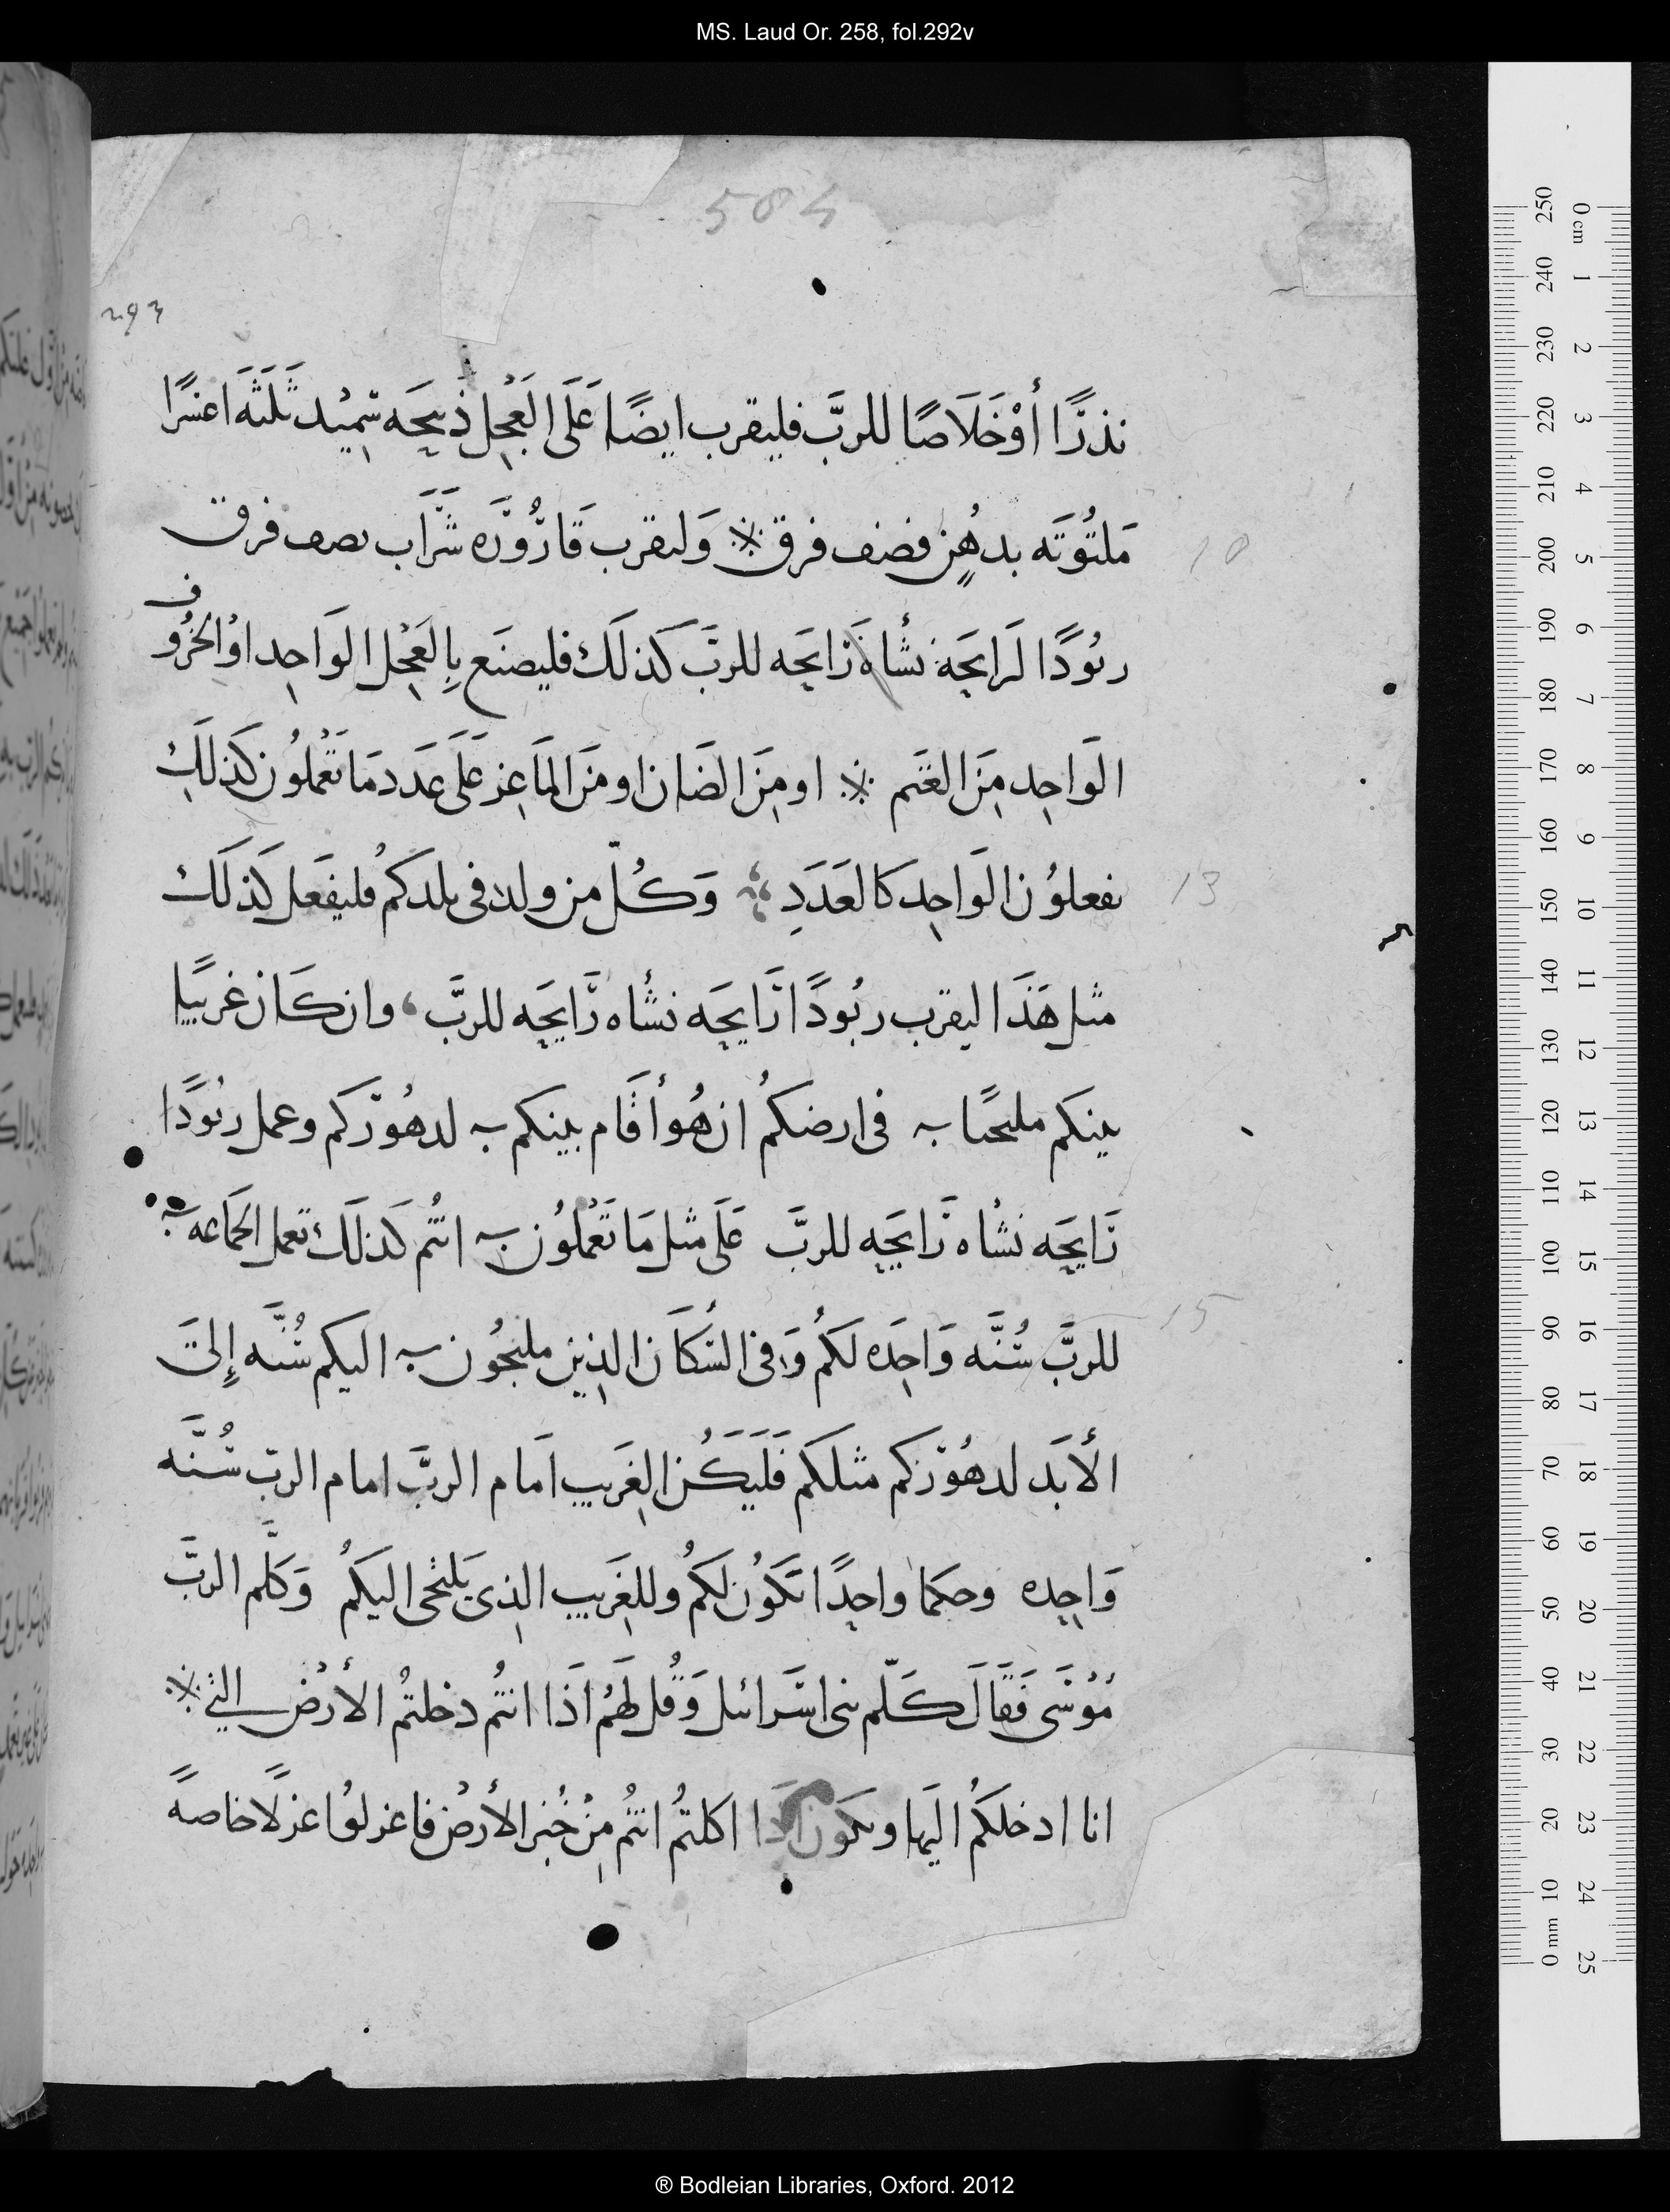 MS. Laud Or. 258, fol.292v
584
293
نذرًا أوْ خَلَاصًا للربَّ فليقرب ايضًا عَلَى العَجِل ذَبيحَه سَمِيْد ثَلَثَه اعشرًا
مَلتُوتَه بدهُنٍ فضف فرق ※ وَليقرب قَارُوَره شَّرَاب نصف فرق
10
ربُودًا لَرايحَة نشَأه رَايحَه للربَّ كَذلَك فليصنَع بِالعَجِل الوَاحِد اوُ الخَرُوف
الوَاحِد مِنَ الغنَم ※ او مِنَ الضَان او منَ المَاعِز عَلَى عَدَد مَا تَعْمَلُون كَذلَك
تفعلوُن الوَاحِد كالعَدَدِ وَكُلّ من ولد فى بلدكمُ فليفَعل كَذلَك
13
مثل هَذَا ليقرب ربُودًا رَايحَه نشَأه رَايحَه للربَّ، وان كَان غريبًا
بينكم ملتحيًا فى ارضكمُ ان هُو أقَام بينكم لدهُورَكم وعمل ربُودًا
رَايحَه نشَأه رَايحَه للربَّ عَلَى مثل مَا تَعْمَلُون انتُم كَذلَك تعمل الجَمَاعه
للربَّ سُنَّه وَاحِدَه لَكمُ وَفى السُكَان الذِين ملتجُون اليكم سُنَّه إِلىَ
15
الأبَد لدهُورَكم مثلَكم فَلَيَكُن الغَريب امَام الربَّ امام الربّ سُنَّه
وَاحِده وحكما واحِدًا تكَوُن لَكمُ وللغَريب الذِى يَلتْجى اليكَمُ وَكَلَّم الربَّ
مُوُسَى فَقَالَ كَلّم بنى اسَرائل وَقُل لَهُم اذَا انتُم دخلتمُ الأرْض التي ※
انا ادخلكُم اليَها ويكَون اذَا اكلتمُ انتُم مِنْ خُبز الأرْض فاعزلوُا عزلًا خاصهً
250 240 230 220 210 200 190 180 170 160 150 140 130 120 110 100 90 80 70 60 50 40 30 20 10 0 mm
0 cm 1 2 3 4 5 6 7 8 9 10 11 12 13 14 15 16 17 18 19 20 21 22 23 24 25
® Bodleian Libraries, Oxford. 2012